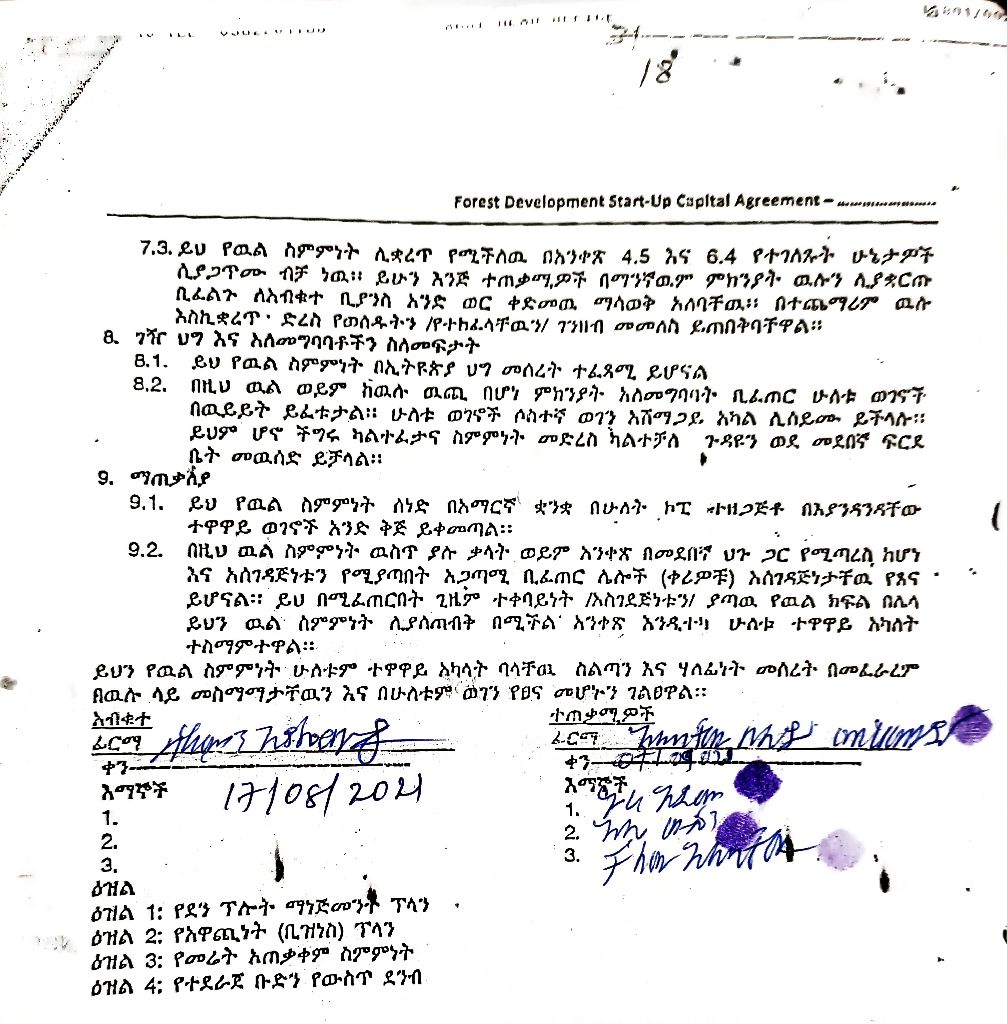 31
18
Forest Development Start-Up Capital Agreement – ........................
7.3. ይህ የዉል ስምምነት ሊቋረጥ የሚችለዉ በአንቀጽ 4.5 እና 6.4 የተገለጹት ሁኔታዎች
ሲያጋጥሙ ብቻ ነዉ። ይሁን እንጅ ተጠቃሚዎች በማንኛዉም ምክንያት ዉሉን ሊያቋርጡ
ቢፈልጉ ለአብቁተ ቢያንስ አንድ ወር ቀድመዉ ማሳወቅ አለባቸዉ። በተጨማሪም ዉሉ
እስኪቋረጥ ድረስ የወሰዱትን /የተከፈላቸዉን/ ገንዘብ መመለስ ይጠበቅባቸዋል።
8. ገዥ ህግ እና አለመግባባቶችን ስለመፍታት
8.1. ይህ የዉል ስምምነት በኢትዩጵያ ህግ መሰረት ተፈጻሚ ይሆናል
8.2. በዚህ ዉል ወይም ከዉሉ ዉጪ በሆነ ምክንያት አለመግባባት ቢፈጠር ሁለቱ ወገኖች
በዉይይት ይፈቱታል። ሁለቱ ወገኖች ሶስተኛ ወገን አሸማጋይ አካል ሊሰይሙ ይችላሉ።
ይህም ሆኖ ችግሩ ካልተፈታና ስምምነት መድረስ ካልተቻለ ጉዳዩን ወደ መደበኛ ፍርደ
ቤት መዉሰድ ይቻላል።
9. ማጠቃለያ
9.1. ይህ የዉል ስምምነት ሰነድ በአማርኛ ቋንቋ በሁለት ኮፒ ተዘጋጅቶ በእያንዳንዳቸው
ተዋዋይ ወገኖች አንድ ቅጅ ይቀመጣል።
9.2. በዚህ ዉል ስምምነት ዉስጥ ያሉ ቃላት ወይም አንቀጽ በመደበኛ ህጉ ጋር የሚጣረስ ከሆነ
እና አሰገዳጅነቱን የሚያጣበት አጋጣሚ ቢፈጠር ሌሎች (ቀሪዎቹ) አሰገዳጅነታቸዉ የጸና
ይሆናል። ይህ በሚፈጠርበት ጊዜም ተቀባይነት /አስገደጅነቱን/ ያጣዉ የዉል ክፍል በሌላ
ይህን ዉል ስምምነት ሊያስጠብቅ በሚችል አንቀጽ እንዲተካ ሁለቱ ተዋዋይ አካለት
ተስማምተዋል።
ይህን የዉል ስምምነት ሁለቱም ተዋዋይ አካላት ባላቸዉ ስልጣን እና ሃላፊነት መሰረት በመፈራረም
በዉሉ ላይ መስማማታቸዉን እና በሁለቱም ወገን የፀና መሆኑን ገልፀዋል።
አብቁተ
ፊርማ
ቀን
17/08/2021
እማኞች
1.
2.
3.
ተጠቃሚዎች
ፊርማ
ቀን
እማኞች
1.
2.
3.
ዕዝል
ዕዝል 1: የደን ፕሎት ማነጅመንት ፕላን
ዕዝል 2: የአዋጪነት (ቢዝነስ) ፕላን
ዕዝል 3: የመሬት አጠቃቀም ስምምነት
ዕዝል 4: የተደራጀ ቡድን የውስጥ ደንብ